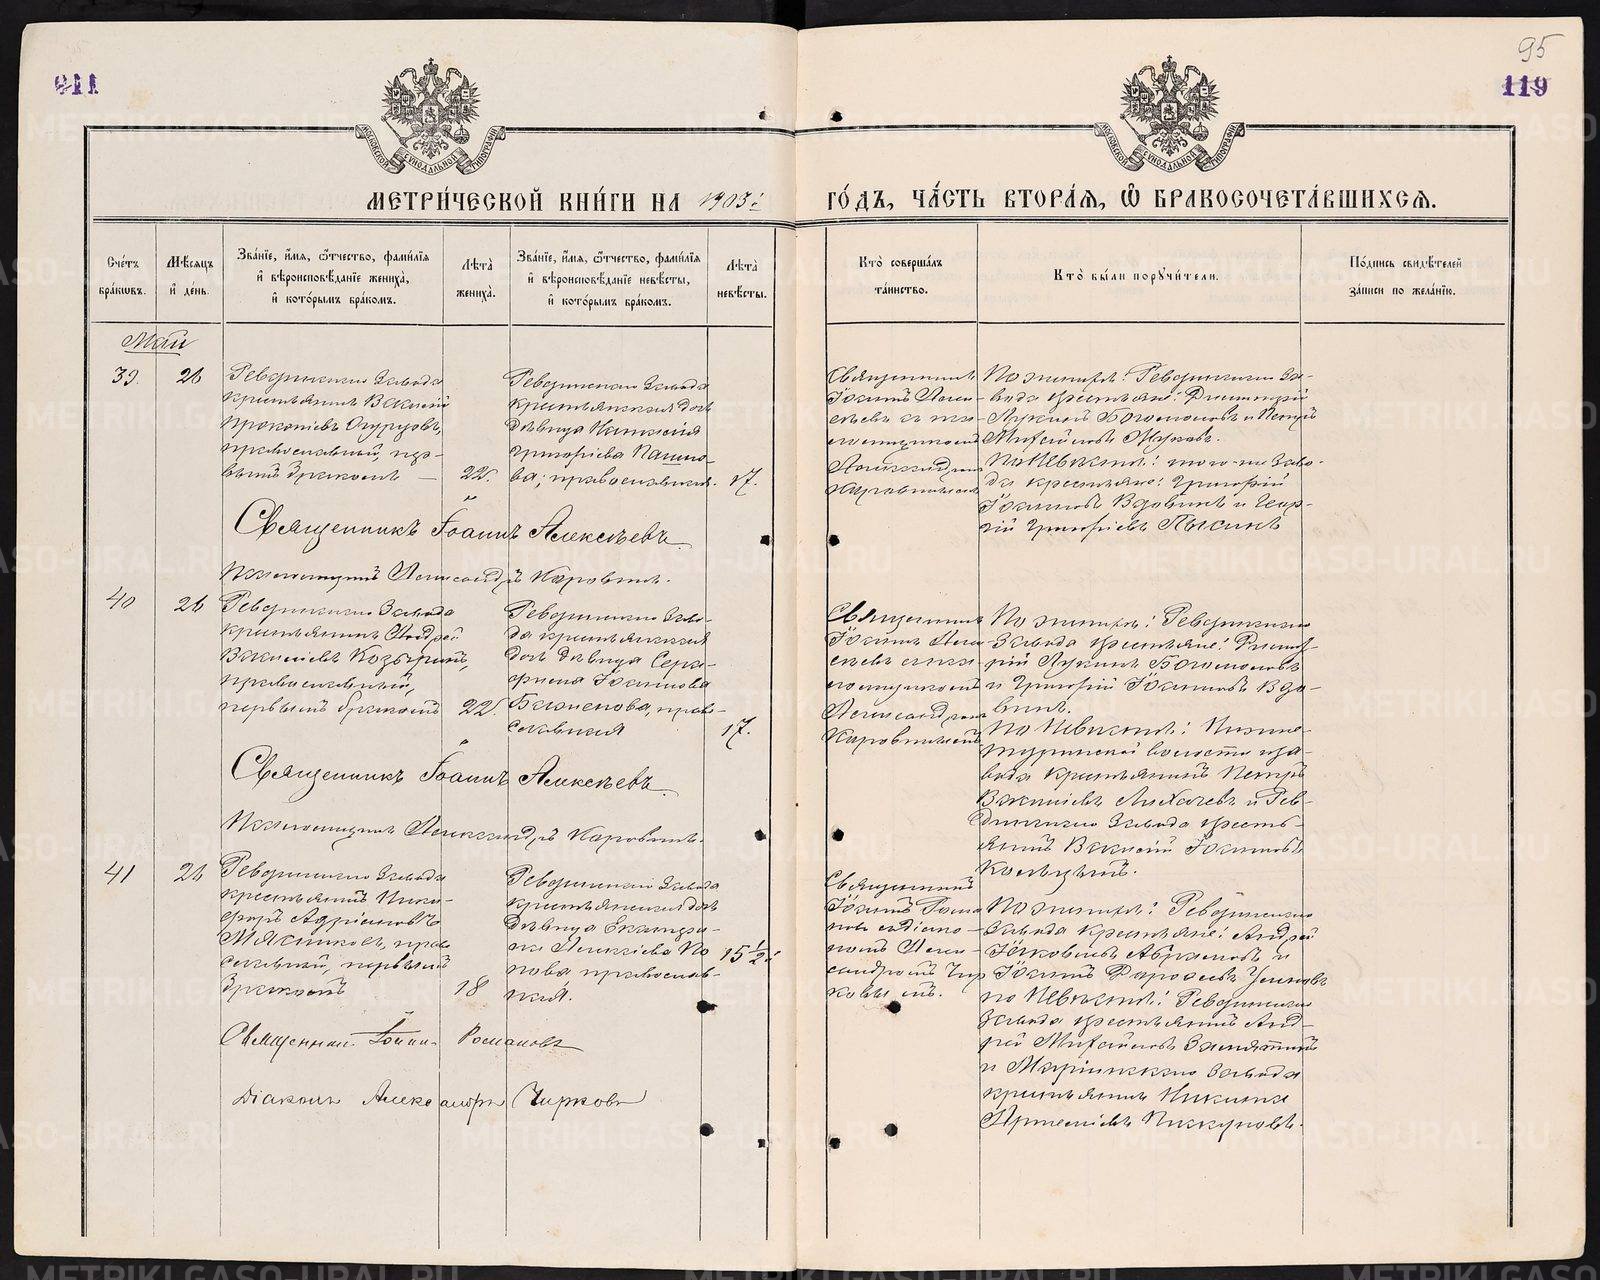 911
95
119
МОСКОВСКОЙ СѴНОДАЛЬНОЙ ТИПОГРАФІИ
МОСКОВСКОЙ СѴНОДАЛЬНОЙ ТИПОГРАФІИ
МЕТРИ́ЧЕСКОЙ КНИ́ГИ НА 1903 й
ГО́ДЪ, ЧА́СТЬ ВТОРА́Ѧ, Ѽ БРАКОСОЧЕТА́ВШИХСѦ.
Сче́тъ
бра́кѡвъ.
Мѣ́сѧцъ
и҆ де́нь.
Зва́нїе, и҆́мѧ, ѻ҆́тчество, фами́лїѧ
и҆ вѣроисповѣ́данїе жениха̀,
и҆ кото́рымъ бра́комъ.
Лѣ́та
жениха̀.
Зва́нїе, и҆́мѧ, ѻ҆́тчество, фами́лїѧ
и҆ вѣроисповѣ́данїе невѣ́сты,
и҆ кото́рымъ бра́комъ.
Лѣ́та
невѣ́сты.
Кто̀ соверша́лъ
та́инство.
Кто̀ бы́ли порꙋчи́тели.
По́дпись свидѣ́телей
за́писи по жела́нїю.
Май
39.
26
Ревдинскаго Завода
крестьянинъ Василій
Прокопіевъ Огурцовъ,
православный, пер-
вымъ бракомъ —
22.
Ревдинскаго Завода
крестьянская дочь
дѣвица
Григоріева
ва; православная.
17.
Священникъ
Іоаннъ Алек-
сѣевъ съ пса-
ломщикомъ
Александромъ
Каровинымъ
По женихѣ: Ревдинскаго За-
вода крестьяне: Димитрій
Лукинъ Богомоловъ и Петръ
Михайловъ Жуковъ.
По Невѣстѣ: того-же Заво-
да крестьяне: Григорій
Іоанновъ Вдовинъ и Геор-
гій Григоріевъ Пысинъ
Священникъ Іоаннъ Алексѣевъ.
Псаломщикъ Александръ Каровинъ.
40
26
Ревдинскаго Завода
крестьянинъ Андрей
Василіевъ Козыринъ,
православный,
первымъ бракомъ
22.
Ревдинскаго Заво-
да крестьянская
дочь дѣвица Сера-
фима Іоаннова
Баженова, право-
славная
17.
Священникъ
Іоаннъ Алек-
сѣевъ съ пса-
ломщикомъ
Александромъ
Каровинымъ
По женихѣ: Ревдинскаго
Завода крестьяне: Димит-
рій Лукинъ Богомоловъ
и Григорій Іоанновъ Вдо-
винъ.
По Невѣстѣ: Нижне-
туринской волости и за-
вода крестьянинъ Петръ
Василіевъ Лихачевъ и Рев-
динскаго Завода кресть-
янинъ Василій Іоанновъ
Священникъ Іоаннъ Алексѣевъ.
Псаломщикъ Александръ Каровинъ.
41
26
Ревдинскаго Завода
крестьянинъ Ники-
форъ Адріановъ
Мясниковъ, право-
славный, первымъ
бракомъ
18
Ревдинскаго Завода
крестьянская дочь
дѣвица Екатери-
на Алексіева По
пова православ-
ная.
15 ½
Священникъ
Іоаннъ Рома
новъ съ діако-
номъ Алек-
сандромъ Чир
ковымъ.
По женихѣ: Ревдинскаго
Завода крестьяне: Андрей
Іаковлевъ Абрамовъ и
Іоаннъ
по Невѣстѣ: Ревдинскаго
Завода крестьянинъ Анд-
рей Михайловъ
и Маріинскаго Завода
крестьянинъ Никита
Артеміевъ Пискуновъ.
Священникъ Іоаннъ Романовъ
Діаконъ Александръ Чирковъ
METRIKI.GASO-URAL.RU